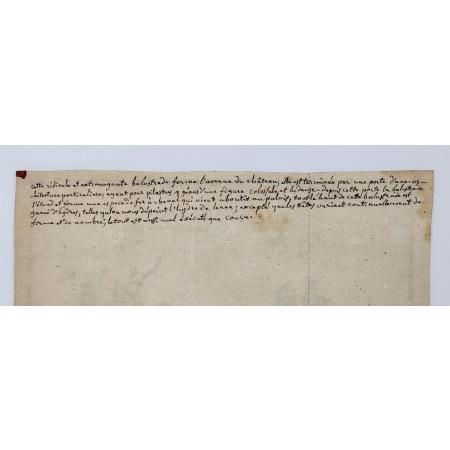 cette ridicule et extravagante balustrade forme l'avenue du château; elle est terminée par une porte d'une ar-
chitecture particuliere; ayant pour pilastres 4 géans d'une figure colossale et hideuse. depuis cette porte la balustrade
s'étend et forme une espece de fer à cheval qui vient aboutir au palais, tout le haut de cette balustrade est
garni d'hydres, telles qu'on nous dépeint l'hydre de lerne; excepté que les têtes varient continuellement de
forme et de nombre; le tout est aussi mal exécuté que conçu.